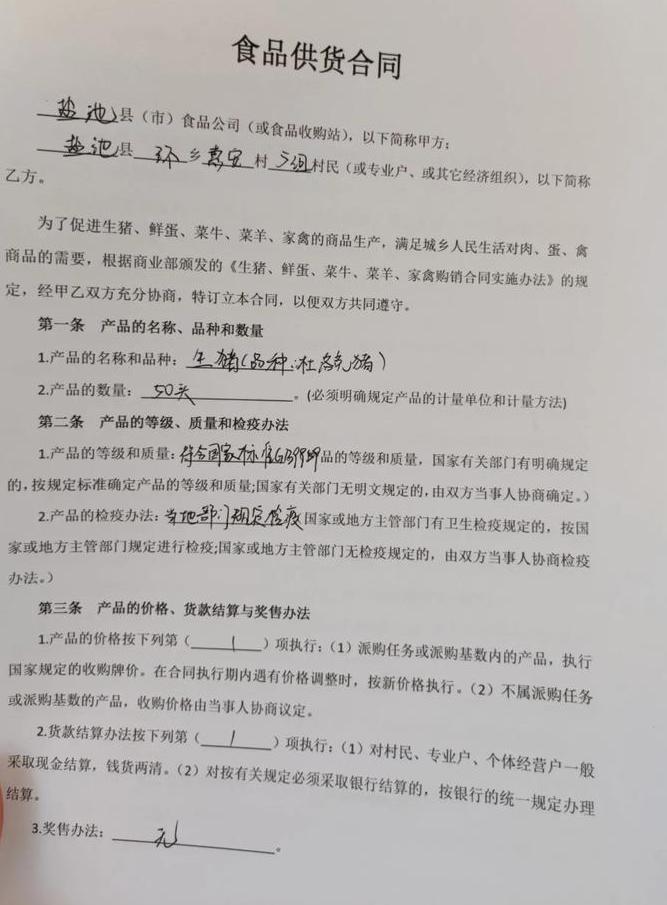 食品供货合同
盐池县（市）食品公司（或食品收购站），以下简称甲方；
盐池县 环 乡惠安村 组村民（或专业户、或其它经济组织），以下简称
乙方。
为了促进生猪、鲜蛋、菜牛、菜羊、家禽的商品生产，满足城乡人民生活对肉、蛋、禽
商品的需要，根据商业部颁发的《生猪、鲜蛋、菜牛、菜羊、家禽购销合同实施办法》的规
定，经甲乙双方充分协商，特订立本合同，以便双方共同遵守。
第一条 产品的名称、品种和数量
1.产品的名称和品种：生猪（品种:杜洛克猪）
2.产品的数量：50头。(必须明确规定产品的计量单位和计量方法)
第二条 产品的等级、质量和检疫办法
1.产品的等级和质量：符合国家标准品的等级和质量，国家有关部门有明确规定
的，按规定标准确定产品的等级和质量;国家有关部门无明文规定的，由双方当事人协商确定。）
2.产品的检疫办法：当地部门规定检疫国家或地方主管部门有卫生检疫规定的，按国
家或地方主管部门规定进行检疫;国家或地方主管部门无检疫规定的，由双方当事人协商检疫
办法。）
第三条 产品的价格、货款结算与奖售办法
1.产品的价格按下列第（ 1 ）项执行:（1）派购任务或派购基数内的产品，执行
国家规定的收购牌价。在合同执行期内遇有价格调整时，按新价格执行。（2）不属派购任务
或派购基数的产品，收购价格由当事人协商议定。
2.货款结算办法按下列第（ 1 ）项执行:（1）对村民、专业户、个体经营户一般
采取现金结算，钱货两清。（2）对按有关规定必须采取银行结算的，按银行的统一规定办理
结算。
3.奖售办法： 无 。